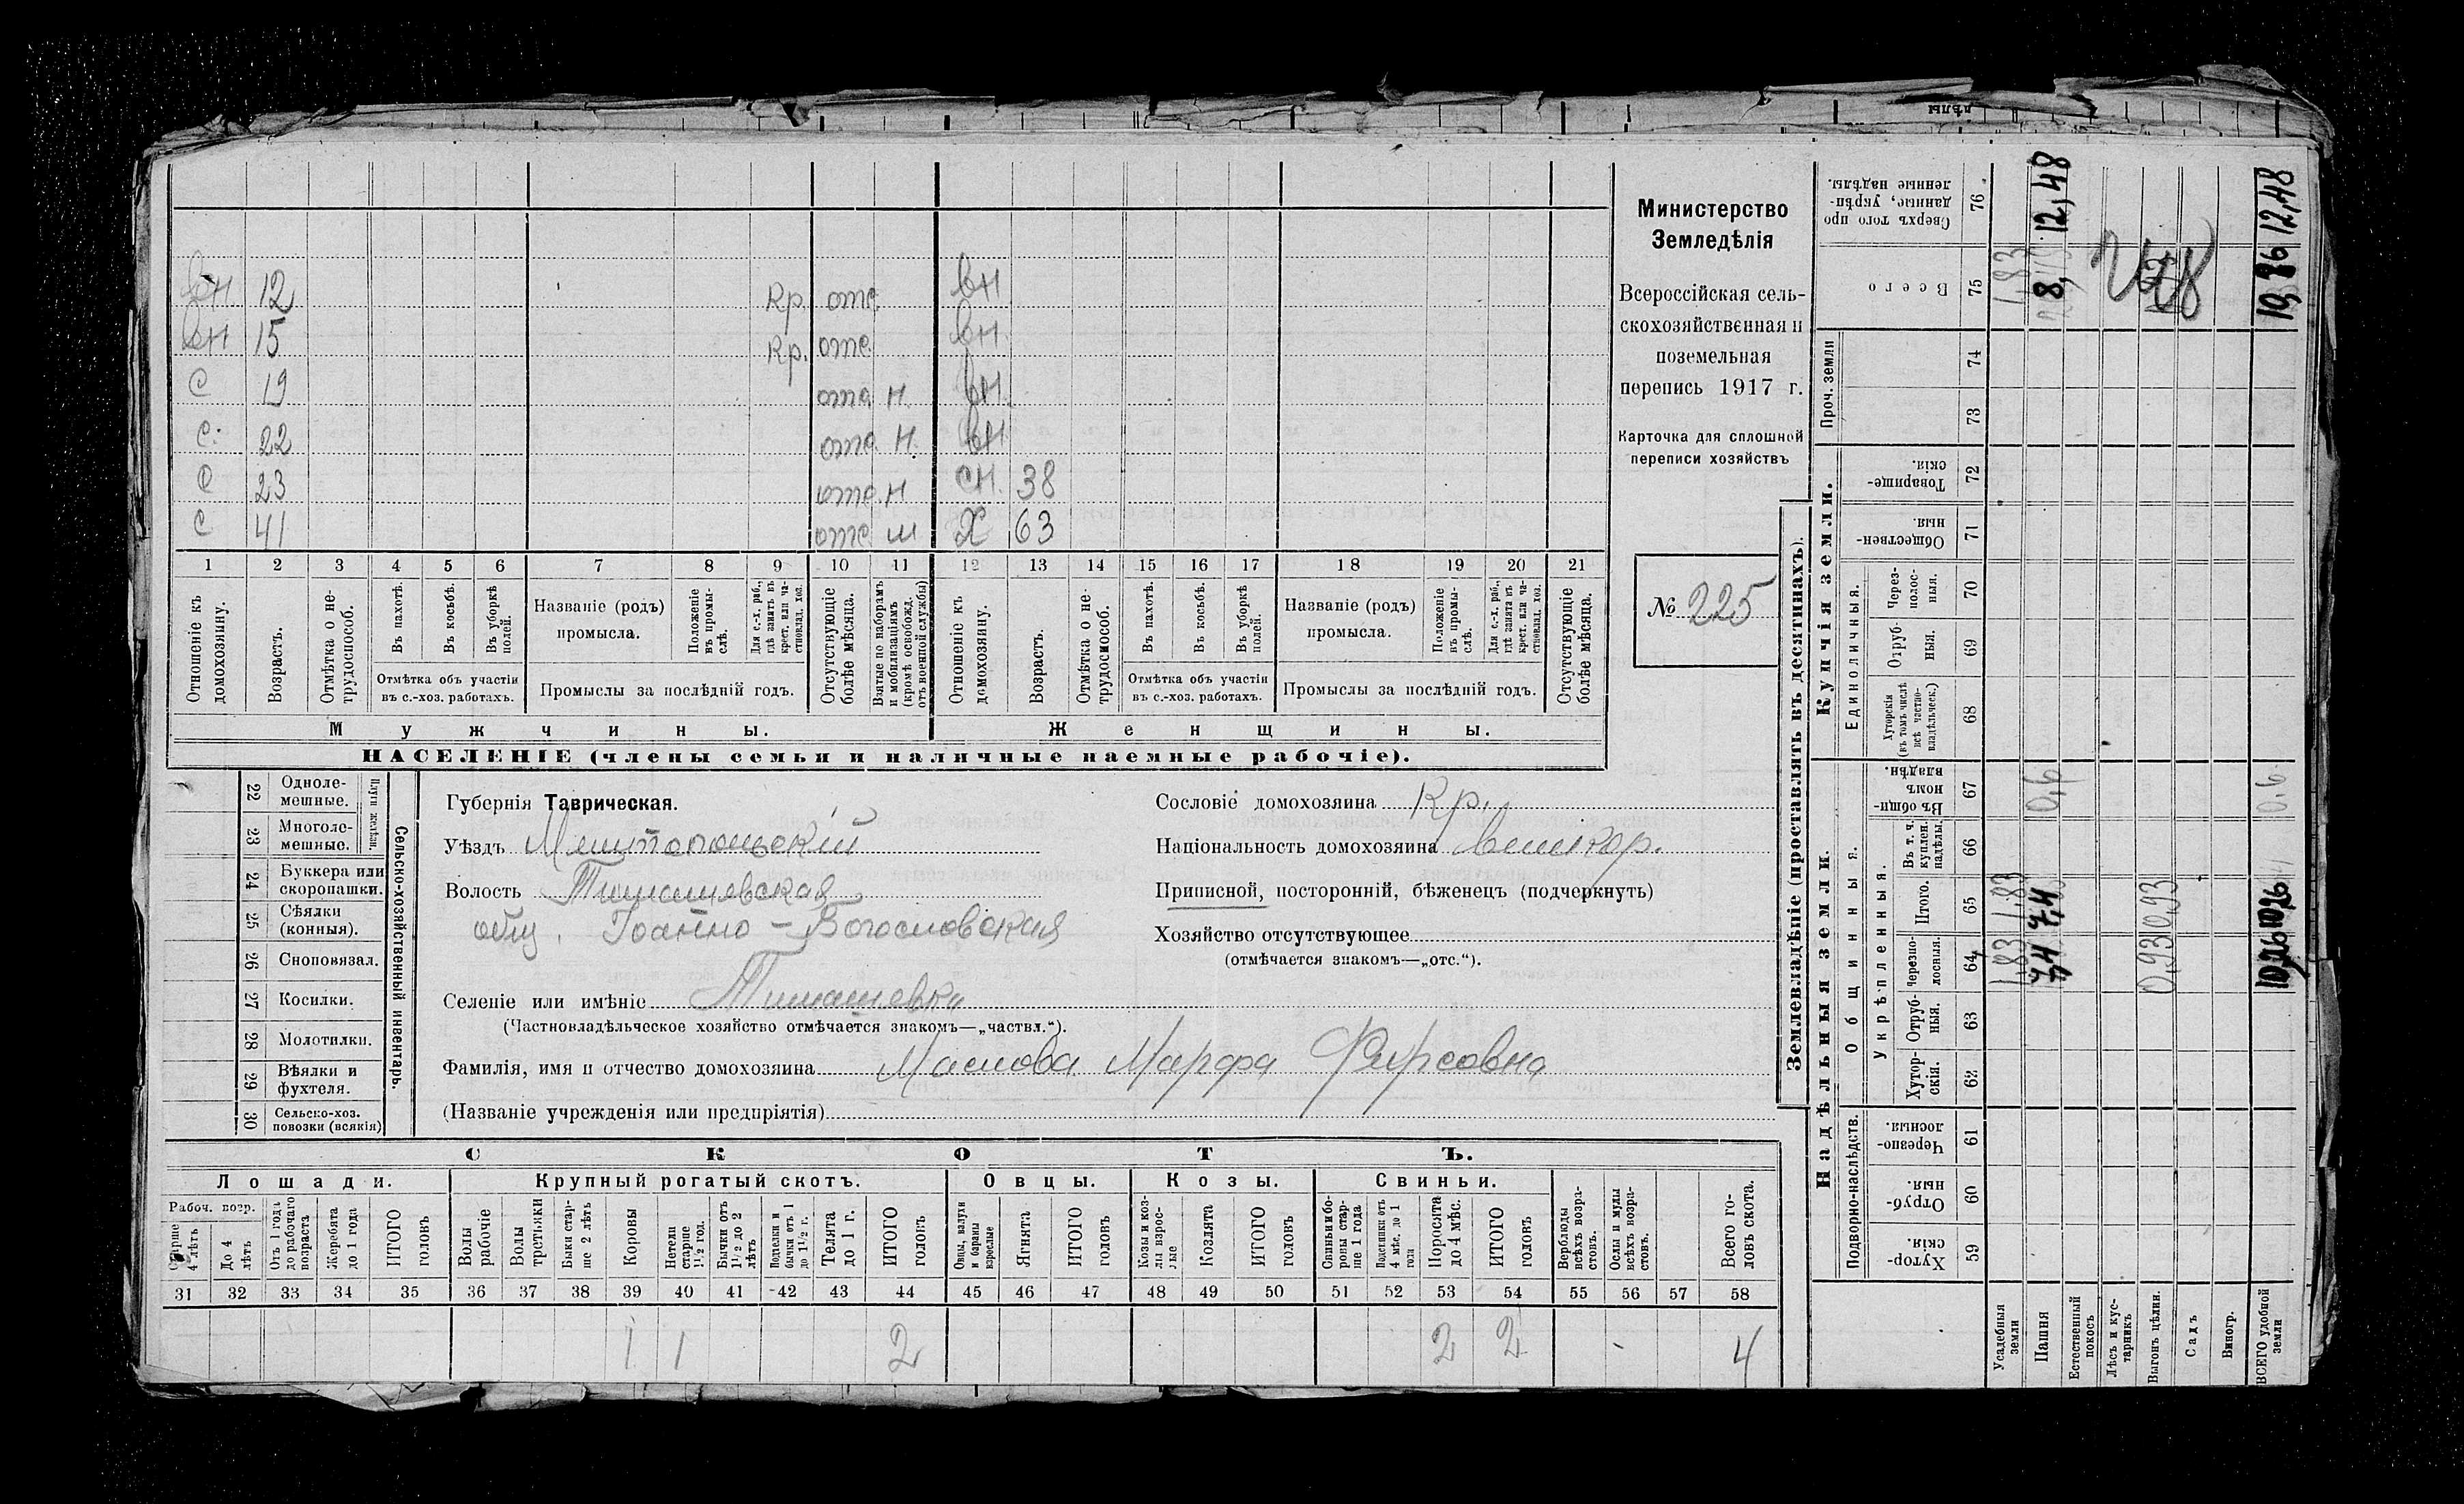 вн 12 Кр. отс. вн
вн 15 Кр. отс. вн.
С 19 отс. н. вн.
С. 22 отс. н. вн
С 23 отс. н сн. 38
С 41 отс. м Х 63
1 2 3 4 5 6 7 8 9 10 11 12 13 14 15 16 17 18 19 20 21
Отношеніе къ домохозяину.
Возрастъ.
Отмѣтка о нетрудоспособ.
Въ пахотѣ.
Въ косьбѣ.
Въ уборкѣ полей.
Отмѣтка объ участіи въ с.-хоз. работахъ.
Названіе (родъ) промысла.
Положеніе въ промыслѣ.
Для с.-х. раб., гдѣ занятъ въ крест. или частновлад. хоз.
Промыслы за послѣдній годъ.
Отсутствующіе болѣе мѣсяца.
Взятые по наборамъ и мобилизаціямъ (кромѣ освобожд. отъ военной службы)
Отношеніе къ домохозяину.
Возрастъ.
Отмѣтка о нетрудоспособ.
Въ пахотѣ.
Въ косьбѣ.
Въ уборкѣ полей.
Отмѣтка объ участіи въ с.-хоз. работахъ.
Названіе (родъ) промысла.
Положеніе въ промыслѣ.
Для с.-х. раб., гдѣ занята въ крест. или частновлад. хоз.
Промыслы за послѣдній годъ.
Отсутствующіе болѣе мѣсяца.
Мужчины. Женщины.
НАСЕЛЕНІЕ (члены семьи и наличные наемные рабочіе).
Министерство
Земледѣлія
Всероссійская сель-
скохозяйственная и
поземельная
перепись 1917 г.
Карточка для сплошной
переписи хозяйствъ
№ 225
22 Одноле-
мешные.
23 Многоле-
мешные.
Плуги желѣзн.
24 Буккера или
скоропашки.
25 Сѣялки
(конныя).
26 Сноповязал.
27 Косилки.
28 Молотилки.
29 Вѣялки и
фухтеля.
30 Сельско-хоз.
повозки (всякія)
Сельско-хозяйственный инвентарь.
Губернія Таврическая.
Уѣздъ Мелитопольскій
Волость Тимашевская
общ. Іоанно-Богословская
Селеніе или имѣніе Тимашевка
(Частновладѣльческое хозяйство отмѣчается знакомъ—„частвл.“).
Фамилія, имя и отчество домохозяина Маслова Марфа Фирсовна
(Названіе учрежденія или предпріятія)
Сословіе домохозяина Кр.
Національность домохозяина великор.
Приписной, посторонній, бѣженецъ (подчеркнуть)
Хозяйство отсутствующее
(отмѣчается знакомъ—„отс.“).
СКОТЪ.
Лошади. Крупный рогатый скотъ. Овцы. Козы. Свиньи.
Рабоч. возр.
Старше 4 лѣтъ
До 4 лѣтъ
Отъ 1 года до рабочаго возраста
Жеребята до 1 года
ИТОГО головъ
Волы рабочіе
Волы третьяки
Быки старше 2 лѣтъ
Коровы
Нетели старше 1½ год.
Бычки отъ 1½ до 2 лѣтъ
Подтелки и бычки отъ 1 до 1½ г.
Телята до 1 г.
ИТОГО головъ
Овцы, валухи и бараны взрослые
Ягнята
ИТОГО головъ
Козы и козлы взрослые
Козлята
ИТОГО головъ
Свиньи боровы старше 1 года
Подсвинки отъ 4 мѣс. до 1 года
Поросята до 4 мѣс.
ИТОГО головъ
Верблюды всѣхъ возрастовъ.
Ослы и мулы всѣхъ возрастовъ.
Всего головъ скота.
31 32 33 34 35 36 37 38 39 40 41 42 43 44 45 46 47 48 49 50 51 52 53 54 55 56 57 58
1 1 2 2 2 4
Землевладѣніе (проставлять въ десятинахъ).
Надѣльныя земли. Купчія земли.
Подворно-наслѣдств.
Общинныя.
Укрѣпленныя.
Единоличныя.
Проч. земли
Хуторскія 59
Отрубныя. 60
Черезполосныя. 61
Хуторскія. 62
Отрубныя. 63
Черезполосныя. 64
Итого. 65
Въ т. ч. куплен. надѣлы. 66
Въ общинномъ владѣн. 67
Хуторскія (въ томъ числѣ всѣ частновладѣльческ.) 68
Отрубныя. 69
Черезполосныя. 70
Общественныя. 71
Товарищескія. 72
73
74
Всего 75
Сверхъ того проданные, укрѣпленные надѣлы. 76
Усадебныя земли 1,83 1,83 1,83
Пашня 7,4 7,4 0,6 8, 12,48
Естественный покосъ
Лѣсъ и кустарникъ
Выгонъ цѣлин. 0,93 0,93
Садъ
Виногр.
ВСЕГО удобной земли 10,26 0,6 12,48